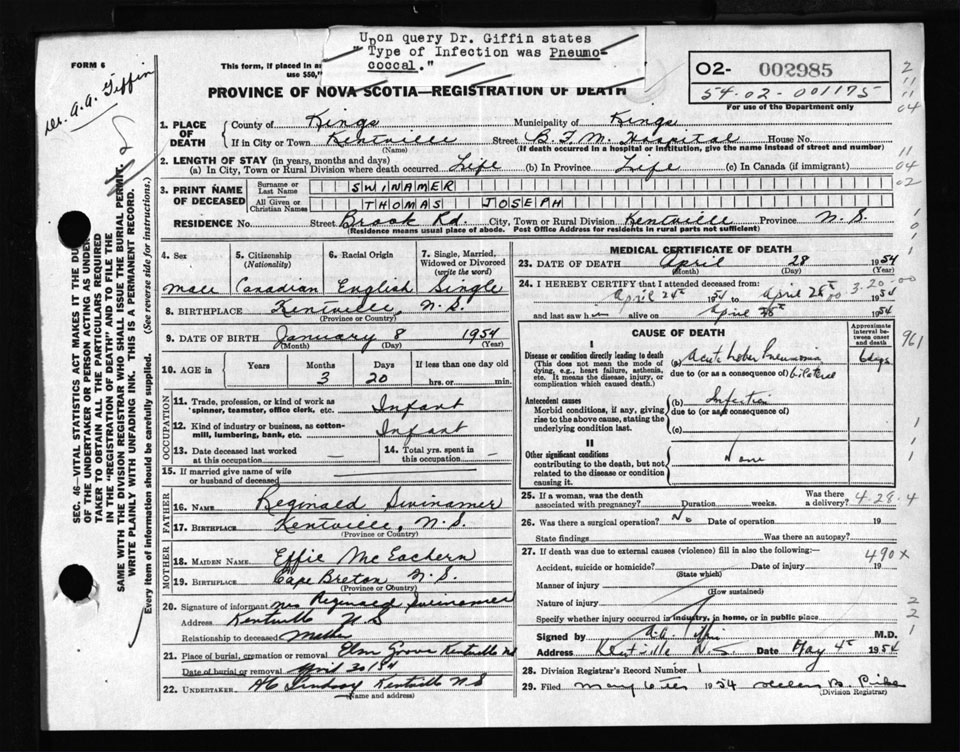 Upon query Dr. Giffin states
"Type of Infection was Pneumo-
coccal."
FORM 6
This form, if placed in a
use $50,
02- 002985
54-02-001175
For use of the Department only
Dr. A.A. Giffin
PROVINCE OF NOVA SCOTIA—REGISTRATION OF DEATH
1. PLACE OF DEATH
County of Kings Municipality of Kings
If in City or Town Kentville Street B.F.M. Hospital House No.
(Name) (If death occurred in a hospital or institution, give the name instead of street and number)
2. LENGTH OF STAY (in years, months and days)
(a) In City, Town or Rural Division where death occurred Life (b) In Province Life (c) In Canada (if immigrant)
3. PRINT NAME OF DECEASED
Surname or Last Name SWINAMER
All Given or Christian Names THOMAS JOSEPH
RESIDENCE No. Street Brook Rd. City, Town or Rural Division Kentville Province N.S.
(Residence means usual place of abode. Post Office Address for residents in rural parts not sufficient)
4. Sex 5. Citizenship (Nationality) 6. Racial Origin 7. Single, Married, Widowed or Divorced (write the word)
Male Canadian English Single
8. BIRTHPLACE Kentville, N.S.
(Province or Country)
9. DATE OF BIRTH January 8 1954
(Month) (Day) (Year)
10. AGE in Years Months Days If less than one day old
3 20 hrs. or min.
OCCUPATION
11. Trade, profession or kind of work as 'spinner, teamster, office clerk, etc. Infant
12. Kind of industry or business, as cotton-mill, lumbering, bank, etc. Infant
13. Date deceased last worked at this occupation — 14. Total yrs. spent in this occupation —
15. If married give name of wife or husband of deceased
FATHER
16. NAME Reginald Swinamer
17. BIRTHPLACE Kentville, N.S.
(Province or Country)
MOTHER
18. MAIDEN NAME Effie McEachern
19. BIRTHPLACE Cape Breton N.S.
(Province or Country)
20. Signature of informant Mrs Reginald Swinamer
Address Kentville N S
Relationship to deceased Mother
21. Place of burial, cremation or removal Elm Grove Kentville NS
Date of burial or removal April 30 1954
22. UNDERTAKER Lindsay Kentville N S
(Name and address)
MEDICAL CERTIFICATE OF DEATH
23. DATE OF DEATH April 28 1954
(Month) (Day) (Year)
24. I HEREBY CERTIFY that I attended deceased from:
April 24th 1954 to April 28th 1954
and last saw him alive on April 1954
3-20-00
CAUSE OF DEATH
Approximate interval between onset and death
I
Disease or condition directly leading to death
(This does not mean the mode of dying, e.g., heart failure, asthenia, etc. It means the disease, injury, or complication which caused death.)
(a) Acute Lobar Pneumonia days
due to (or as a consequence of) bilateral
Antecedent causes
Morbid conditions, if any, giving rise to the above cause, stating the underlying condition last.
(b) Infection
due to (or as a consequence of)
(c)
II
Other significant conditions
contributing to the death, but not related to the disease or condition causing it.
None
25. If a woman, was the death associated with pregnancy? Duration weeks. Was there a delivery?
4-28-4
26. Was there a surgical operation? No Date of operation 19
State findings Was there an autopsy?
27. If death was due to external causes (violence) fill in also the following:—
490 x
Accident, suicide or homicide? Date of injury 19
(State which)
Manner of injury
(How sustained)
Nature of injury
Specify whether injury occurred in industry, in home, or in public place
Signed by A.A. Giffin M.D.
Address Kentville N.S. Date May 4th 1954
28. Division Registrar's Record Number 1
29. Filed 1954 Helen B.
(Division Registrar)
SEC. 46—VITAL STATISTICS ACT MAKES IT THE DU
OF THE UNDERTAKER OR PERSON ACTING AS UNDER-
TAKER TO OBTAIN ALL THE PARTICULARS REQUIRED
IN THE "REGISTRATION OF DEATH" AND TO FILE THE
SAME WITH THE DIVISION REGISTRAR WHO SHALL ISSUE THE BURIAL PERMIT.
WRITE PLAINLY WITH UNFADING INK. THIS IS A PERMANENT RECORD.
Every item of information should be carefully supplied. (See reverse side for instructions.)
2
11
11
04
11
04
02
1
0
1
961
1
1
1
2
2
1